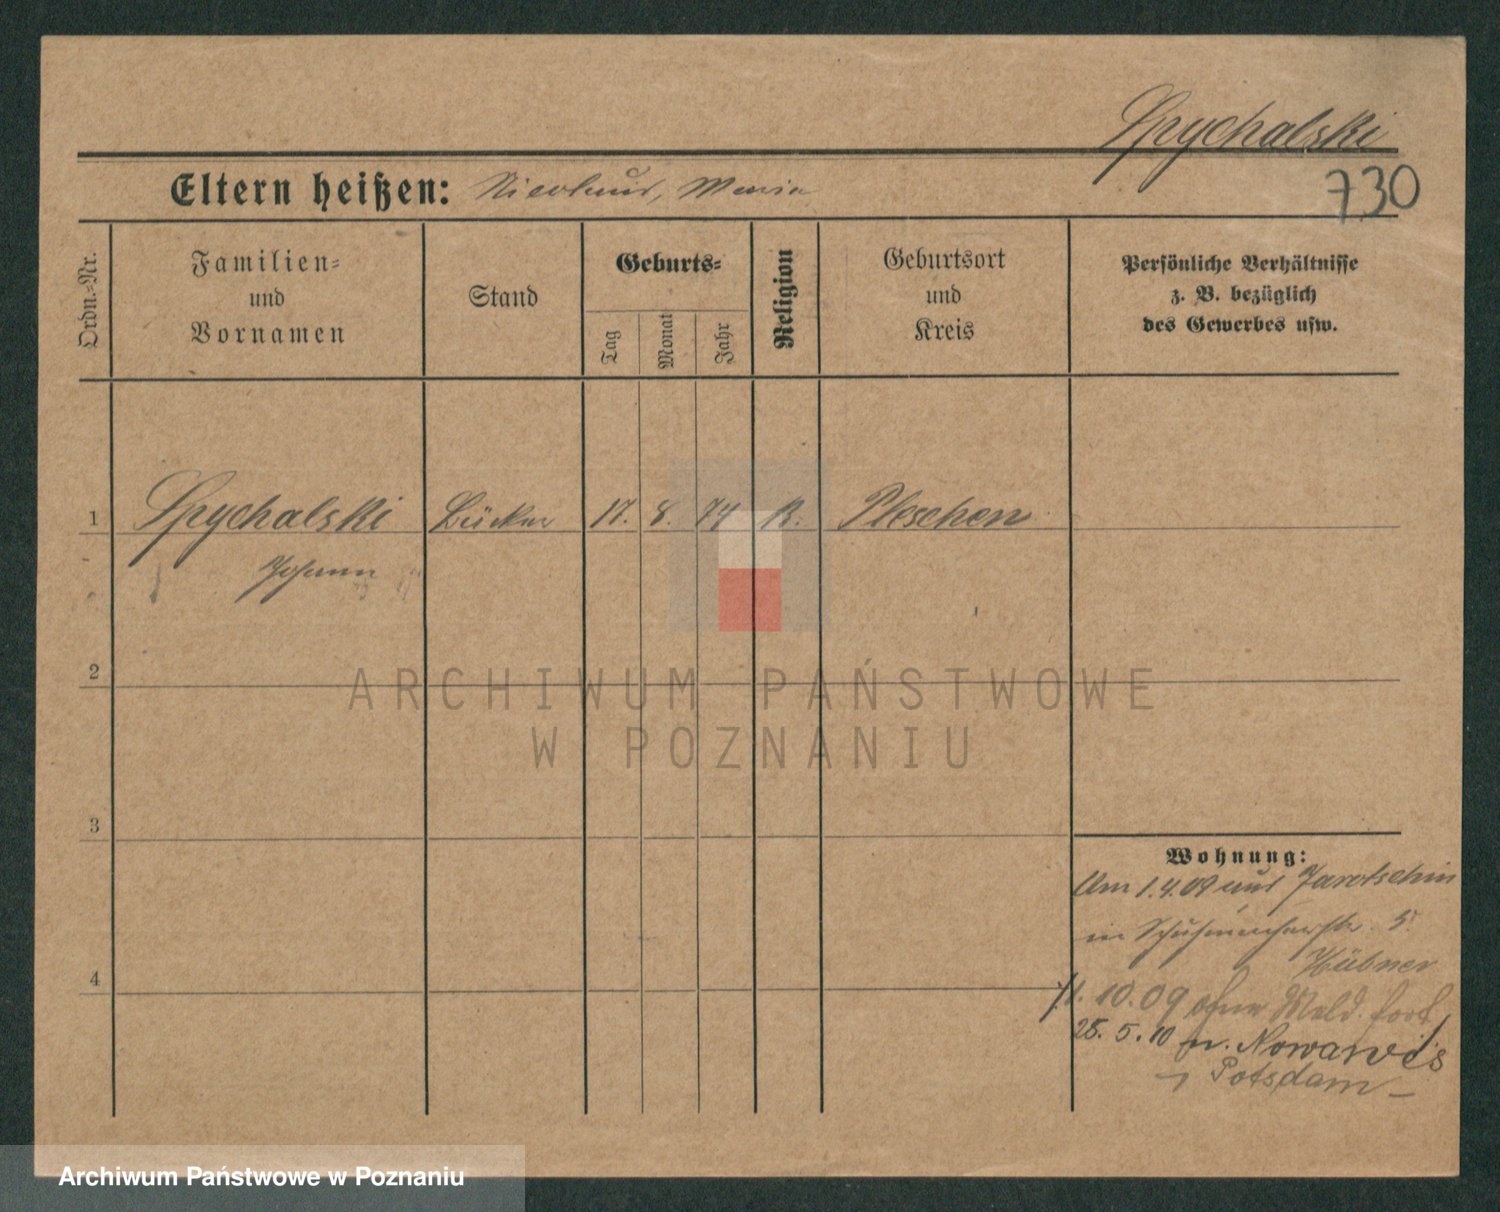 Spychalski
730
Eltern heißen: Nicolaus, Maria
Ordn.-Nr.
Familien-
und
Vornamen
Stand
Geburts-
Tag
Monat
Jahr
Religion
Geburtsort
und
Kreis
Persönliche Verhältnisse
z. B. bezüglich
des Gewerbes usw.
1 Spychalski Bäcker 17. 8. 74 k. Pleschen
Johann
2
3
4
Wohnung:
Am 1.4.09 aus Jarotschin
in Schuhmacherstr. 5.
Hübner
1.10.09 ohne Meld. fort
25.5.10 n. Nowawes
Potsdam
ARCHIWUM PAŃSTWOWE
W POZNANIU
Archiwum Państwowe w Poznaniu